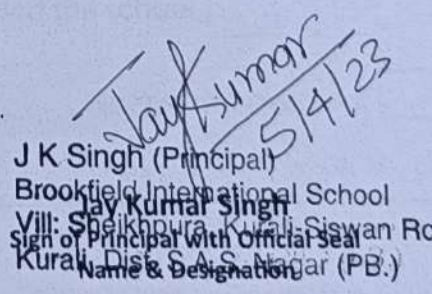 Jay Kumar
5/4/23
J K Singh (Principal)
Brookfield International School
Jay Kumar Singh
Vill: Sheikhpura, Kurali-Siswan Ro
Sign of Principal with Official Seal
Kurali, Dist. S.A.S. Nagar (PB.)
Name & Designation